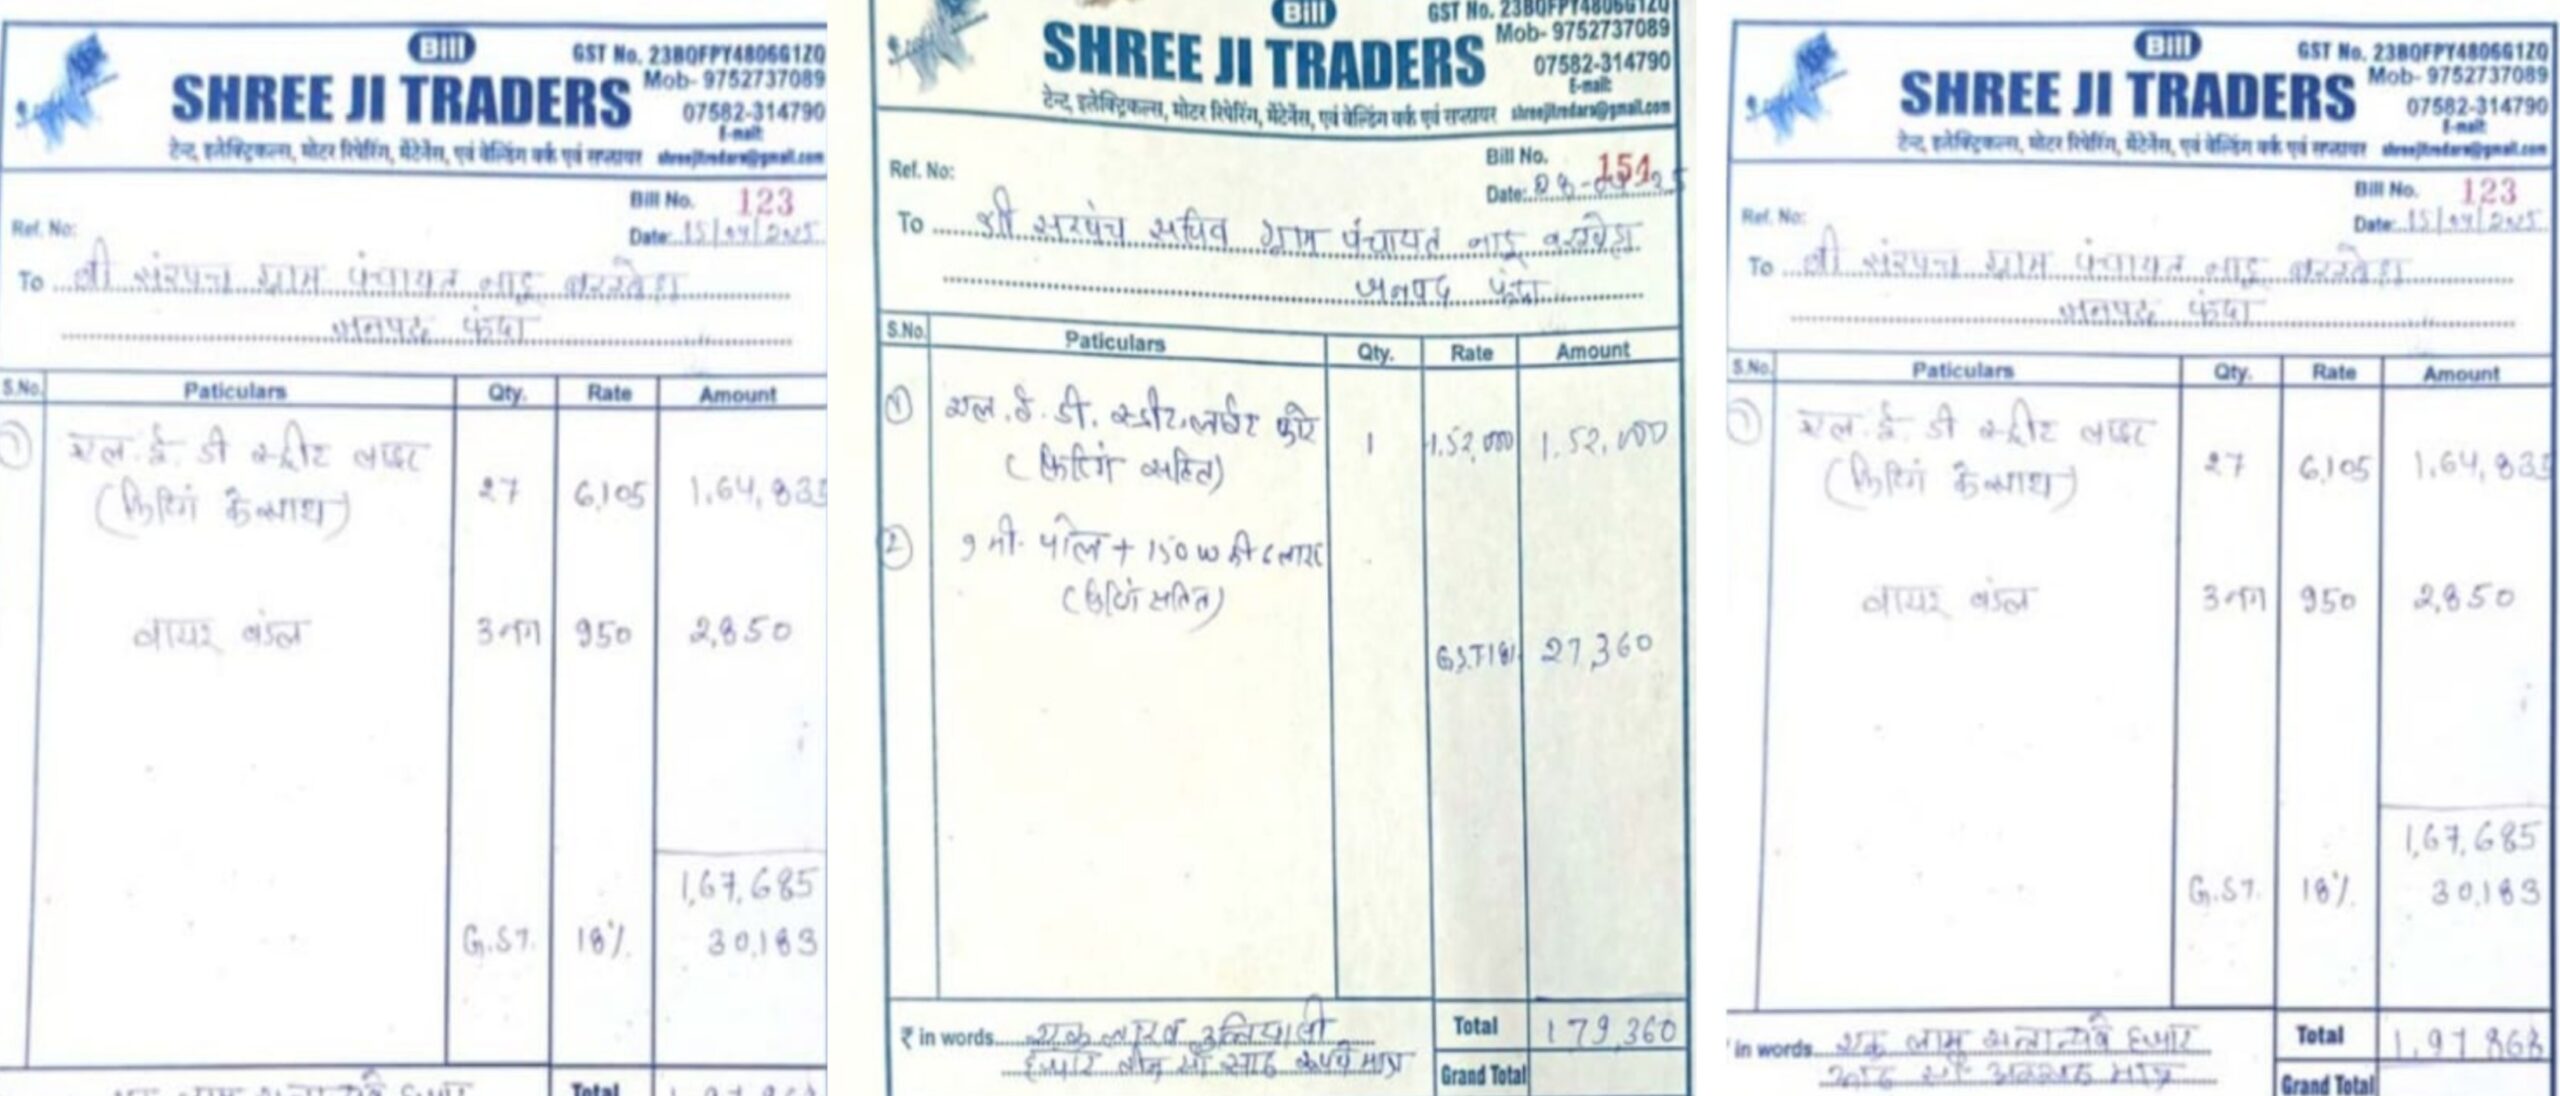 Bill
GST No. 23BQFPY4806G1ZQ
SHREE JI TRADERS
Mob- 9752737089
07582-314790
E-mail:
टेन्ट, इलेक्ट्रिकल्स, मोटर रिपेरिंग, मेंटेनेंस, एवं वेल्डिंग वर्क एवं सप्लायर shreejitredars@gmail.com
Bill No. 123
Ref. No:
Date: 15/04/2025
To श्री संरपच ग्राम पंचायत नाडू बरखेडा
जनपद फंदा
S.No. Paticulars Qty. Rate Amount
1 एल.ई.डी स्ट्रीट लाइट 27 6,105 1,64,835
(फिटिंग के साथ)
वायर बंडल 3 नग 950 2,850
1,67,685
G.ST. 18% 30,183
Total
Bill
GST No. 23BQFPY4806G1ZQ
SHREE JI TRADERS
Mob- 9752737089
07582-314790
E-mail:
टेन्ट, इलेक्ट्रिकल्स, मोटर रिपेरिंग, मेंटेनेंस, एवं वेल्डिंग वर्क एवं सप्लायर shreejitredars@gmail.com
Bill No. 151
Ref. No:
Date:
To श्री सरपंच सचिव ग्राम पंचायत नाडू बरखेडा
जनपद फंदा
S.No. Paticulars Qty. Rate Amount
1 एल.ई.डी. स्ट्रीट लाईट 1 1,52,000 1,52,000
(फिटिंग सहित)
2 9 मी. पोल + 150 W की लाइट
(फिटिंग सहित)
G.S.T 18% 27,360
₹ in words एक लाख उन्यासी
हजार तीन सौ साठ रूपये मात्र
Total 179,360
Grand Total
Bill
GST No. 23BQFPY4806G1ZQ
SHREE JI TRADERS
Mob- 9752737089
07582-314790
E-mail:
टेन्ट, इलेक्ट्रिकल्स, मोटर रिपेरिंग, मेंटेनेंस, एवं वेल्डिंग वर्क एवं सप्लायर shreejitredars@gmail.com
Bill No. 123
Ref. No:
Date: 15/04/2025
To श्री संरपच ग्राम पंचायत नाडू बरखेडा
जनपद फंदा
S.No. Paticulars Qty. Rate Amount
1 एल.ई.डी स्ट्रीट लाइट 27 6,105 1,64,835
(फिटिंग के साथ)
वायर बंडल 3 नग 950 2,850
1,67,685
G.ST. 18% 30,183
in words एक लाख सन्तान्वे हजार
आठ सौ अडसठ मात्र
Total 1,97,868
Grand Total